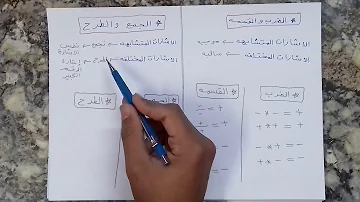 * الجمع والطرح
الاشارات المتشابهه ← نجمع ← نفس الاشارة
الاشارات المختلفه ← طرح ← اشارة الرقم الكبير
* الطرح
* الضرب والقسمه
الاشارات المتشابهه ← موجب
الاشارات المختلفه ← سالب
* القسمه
* الضرب
- * - = +
+ * + = +
- * + = -
+ * - = -